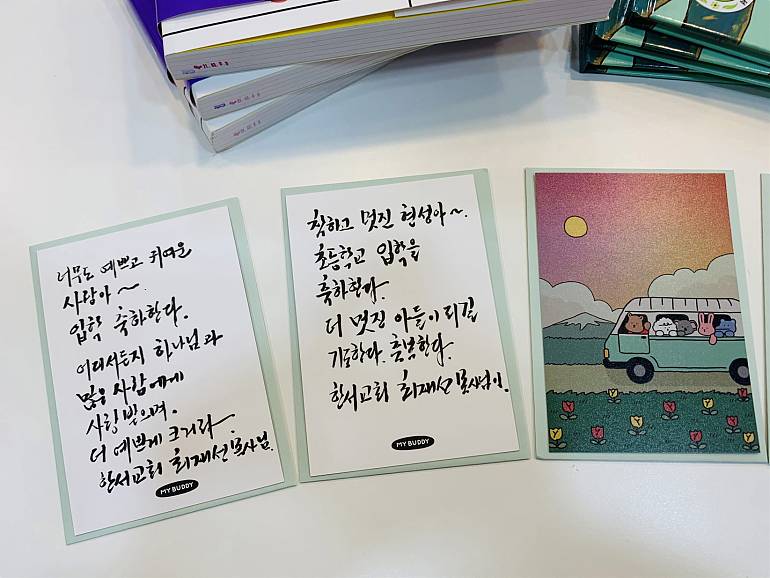 너무도 예쁘고 귀여운
사랑아~.
입학 축하한다.
어디서든지 하나님과
많은 사람에게
사랑받으며.
더 예쁘게 크거라~.
한서교회 최재선 목사님.
MY BUDDY
착하고 멋진 현성아~.
초등학교 입학을
축하한다.
더 멋진 아들이 되길
기도한다. 축복한다.
한서교회 최재선 목사님이.
MY BUDDY